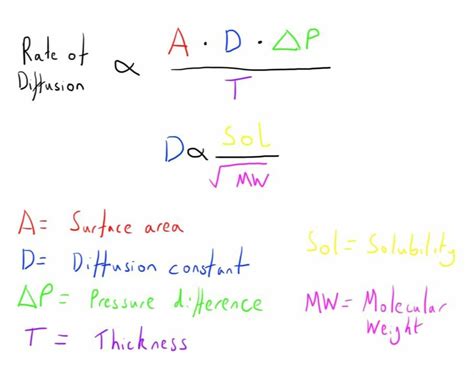 Rate of Diffusion ∝ A · D · ΔP / T
D ∝ Sol / √MW
A = Surface area
D = Diffusion constant
ΔP = Pressure difference
T = Thickness
Sol = Solubility
MW = Molecular Weight